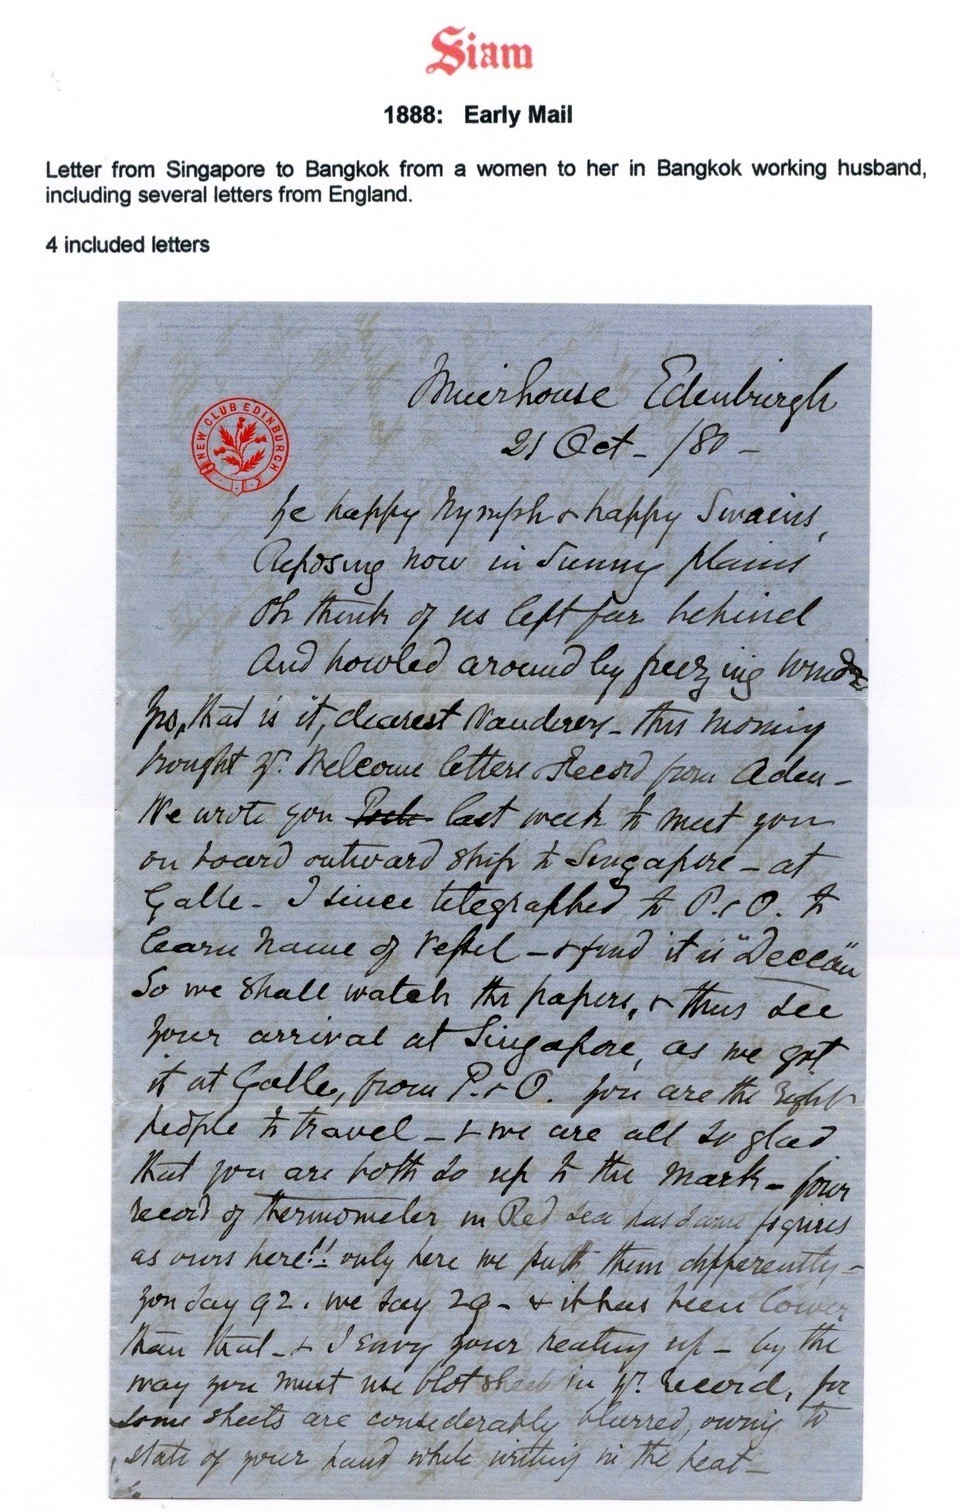 Siam
1888: Early Mail
Letter from Singapore to Bangkok from a women to her in Bangkok working husband,
including several letters from England.
4 included letters
NEW CLUB EDINBURGH
Muirhouse Edenburgh
21 Oct - /80 -
Ye happy Nymph & happy Swains,
Reposing now in Sunny plains
Oh think of us left far behind
And howled around by freezing winds
Yes, that is it, dearest Wanderers - this morning
brought yr. Welcome letters & record from Aden -
We wrote you last week to meet you
on board outward ship to Singapore - at
Galle - I since telegraphed to P. & O. to
learn name of Vessel - & find it is "Deccan"
So we shall watch the papers, & thus see
your arrival at Singapore, as we got
it at Galle, from P. & O. you are the right
people to travel - & we are all so glad
that you are both so up to the mark - your
record of thermometer in Red Sea has same figures
as ours here!! only here we putt them differently -
you say 92. we say 29 - & it has been lower
than that - & I envy your heating up - by the
way you must use blot sheets in yr. record, for
some sheets are considerably blurred, owing to
state of your hand while writing in the heat -